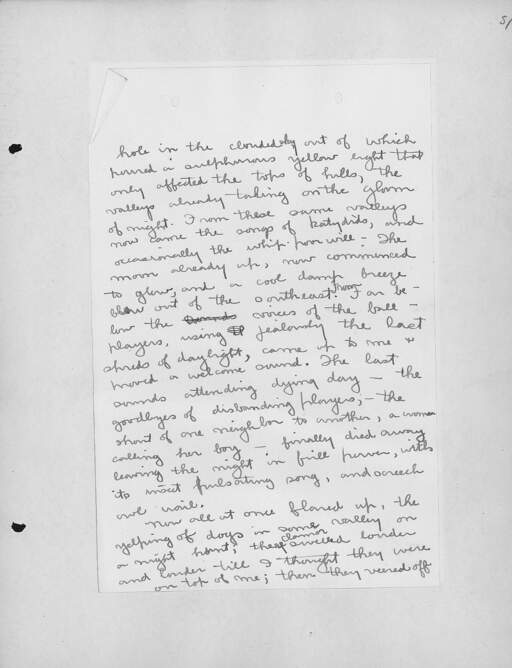 51
hole in the clouded sky out of which
poured a sulphurous yellow light that
only affected the tops of hills, the
valleys already taking on the gloom
of night. From these same valleys
now came the songs of katydids, and
occasionally the whip-poor will. The
moon already up, now commenced
to glow, and a cool damp breeze
blew out of the southeast. From
Far be-
low the voices of the ball-
players, using jealously the last
shreds of daylight, came up to me &
moved a welcome sound. The last
sounds attending dying day — the
goodbyes of disbanding players, — the
shout of one neighbor to another, a woman
calling her boy — finally died away
leaving the night in full power, with
its insect pulsating song, and screech
owl wail.
Now all at once flared up, the
yelping of dogs in some valley on
a night hunt; the clamor swelled louder
and louder till I thought they were
on top of me; then they veered off